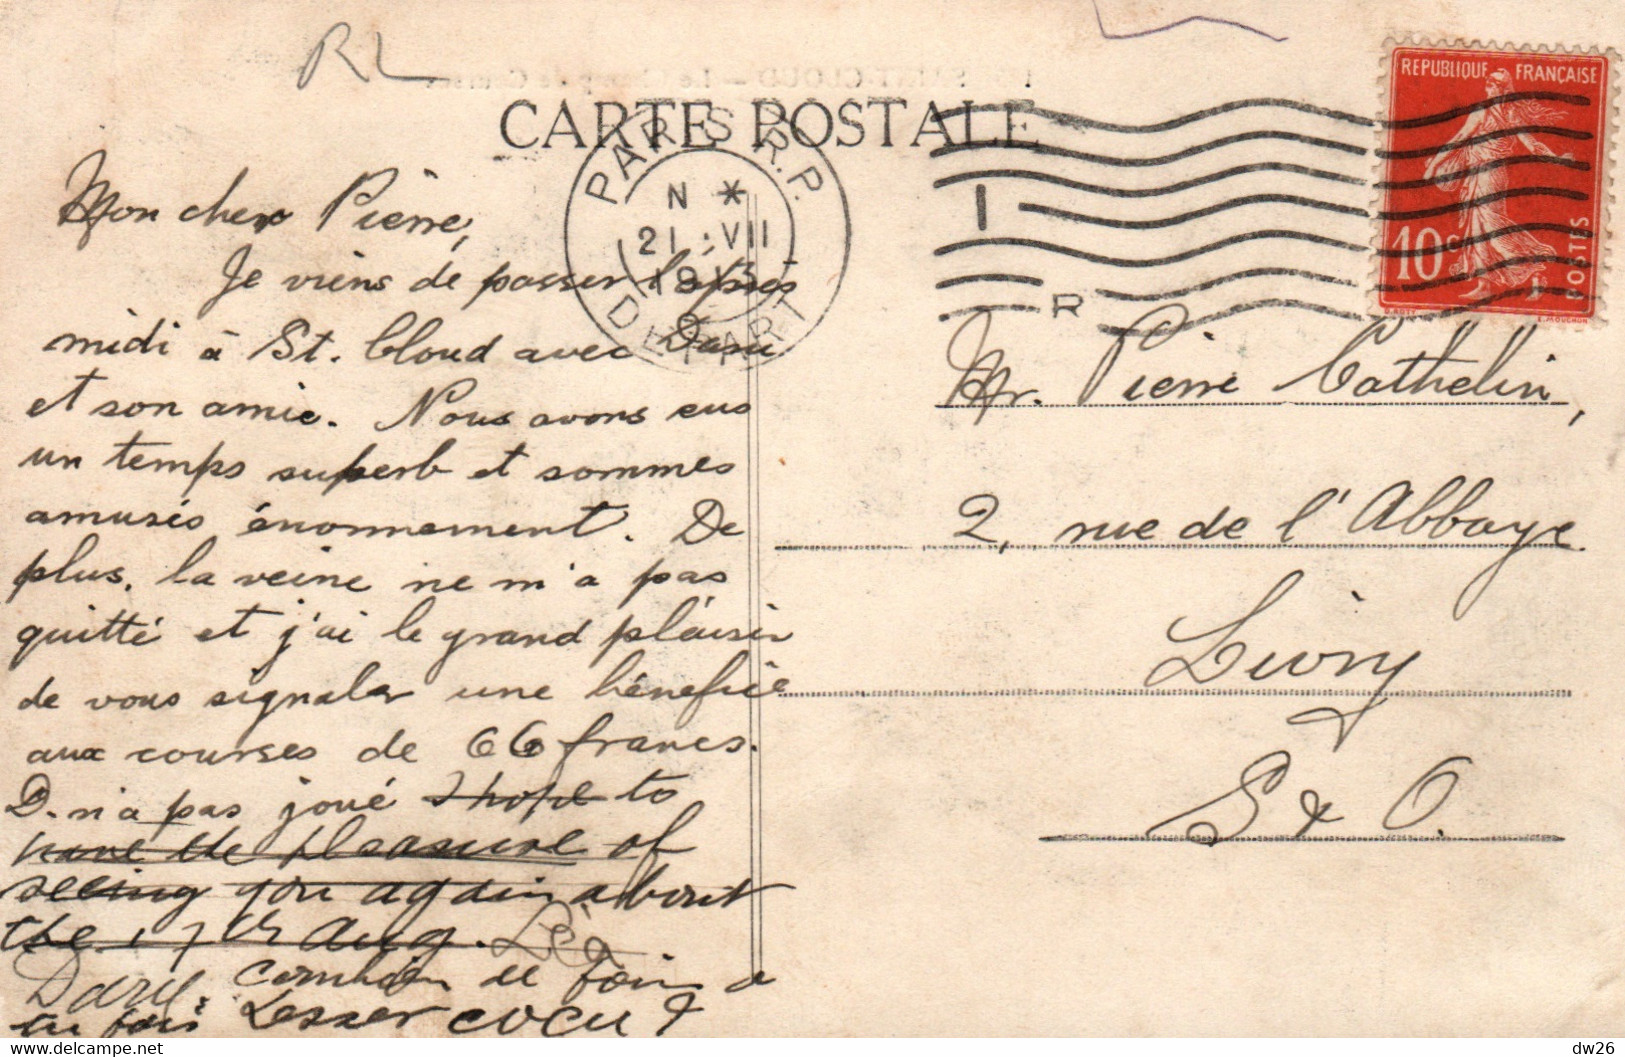 RL
CARTE POSTALE
PARIS R.P.
N *
21 · VII
1913
DEPART
I
R
REPUBLIQUE FRANÇAISE
10 c
POSTES
Mon cher Pierre,
Je viens de passer l'après
midi à St. Cloud avec Dari
et son amie. Nous avons eus
un temps superb et sommes
amusés énormement. De
plus, la veine ne m'a pas
quitté et j'ai le grand pläisir
de vous signaler une bénefice
aux courses de 66 francs.
D. n'a pas joué I hope to
have the pleasure of
seeing you again about
the 17th Aug. Léo
combien de foi
tu fais cocu ?
Mr. Pierre Cathelin,
2, rue de l'Abbaye
Livry
S & O.
dw26